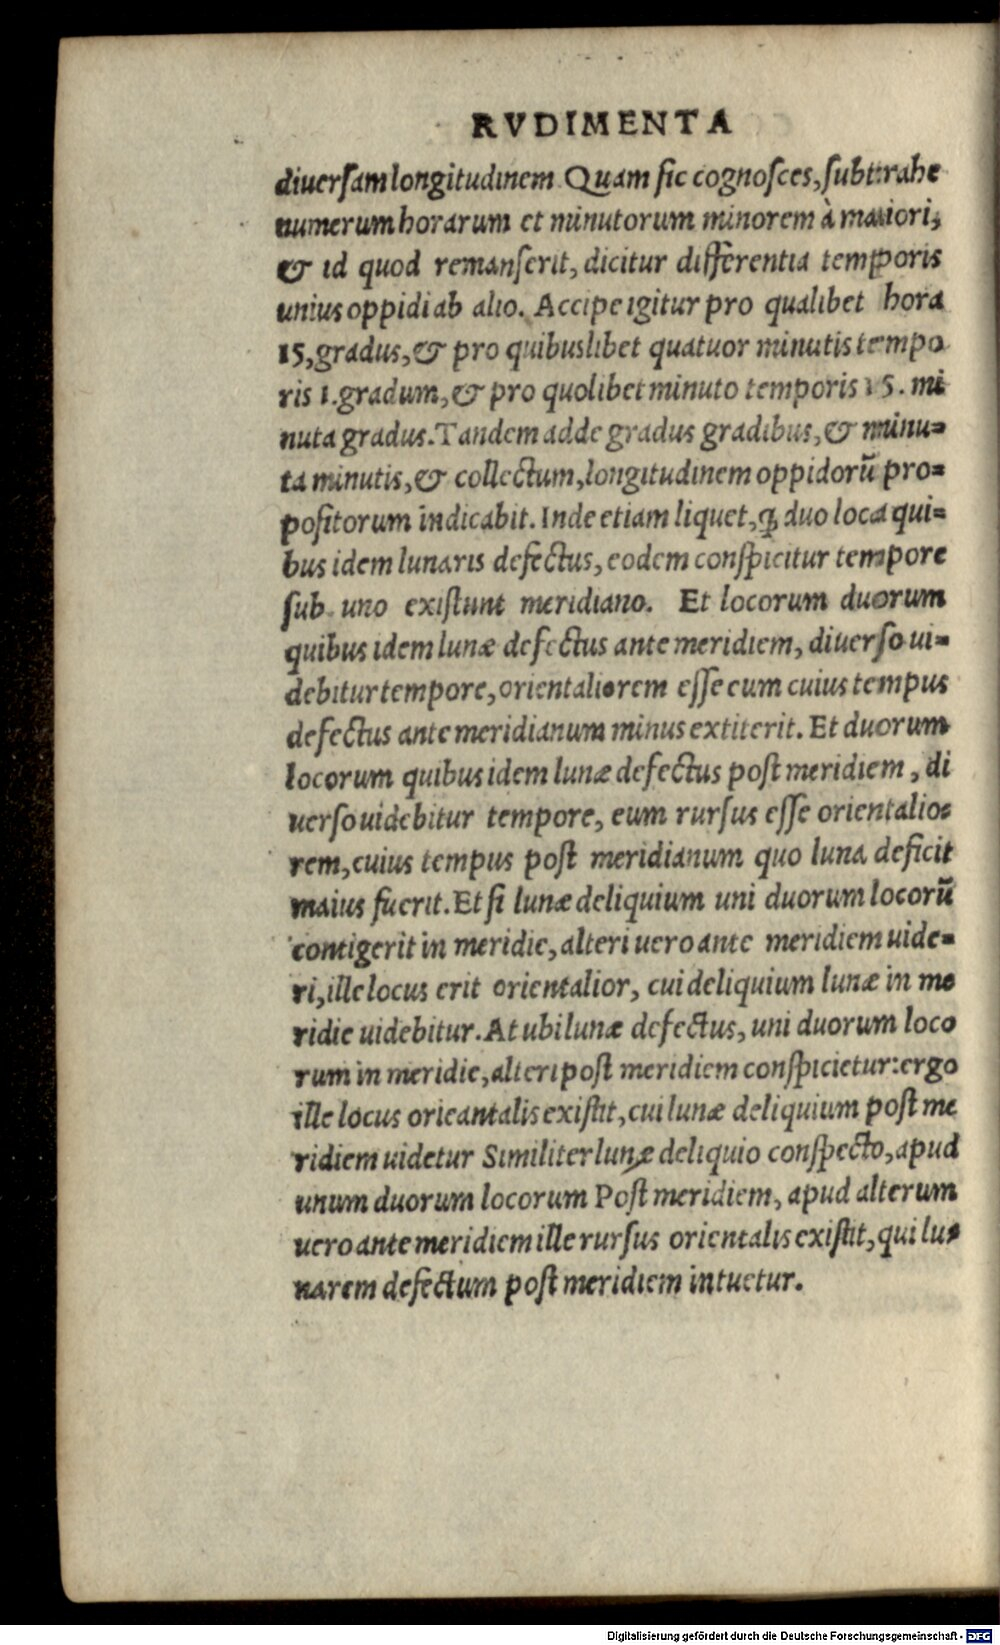 RVDIMENTA
diuerſam longitudinem Quam ſic cognoſces, ſubtrahe
numerum horarum et minutorum minorem à maiori,
& id quod remanſerit, dicitur differentia temporis
unius oppidi ab alio. Accipe igitur pro qualibet hora
15, gradus, & pro quibuslibet quatuor minutis tempo
ris 1. gradum, & pro quolibet minuto temporis 15. mi
nuta gradus. Tandem adde gradus gradibus, & minu=
ta minutis, & collectum, longitudinem oppidorũ pro=
poſitorum indicabit. Inde etiam liquet, ꝙ duo loca qui=
bus idem lunaris defectus, eodem conſpicitur tempore
ſub uno exiſtunt meridiano. Et locorum duorum
quibus idem lunæ defectus ante meridiem, diuerſo ui=
debitur tempore, orientaliorem eſſe eum cuius tempus
defectus ante meridianum minus extiterit. Et duorum
locorum quibus idem lunæ defectus poſt meridiem, di
uerſo uidebitur tempore, eum rurſus eſſe orientalio=
rem, cuius tempus poſt meridianum quo luna deficit
maius fuerit. Et ſi lunæ deliquium uni duorum locorũ
contigerit in meridie, alteri uero ante meridiem uide=
ri, ille locus erit orientalior, cui deliquium lunæ in me
ridie uidebitur. At ubi lunæ defectus, uni duorum loco
rum in meridie, alteri poſt meridiem conſpicietur: ergo
ille locus orieantalis exiſtit, cui lunæ deliquium poſt me
ridiem uidetur Similiter lunæ deliquio conſpecto, apud
unum duorum locorum Poſt meridiem, apud alterum
uero ante meridiem ille rurſus orientalis exiſtit, qui lu=
narem defectum poſt meridiem intuetur.
Digitalisierung gefördert durch die Deutsche Forschungsgemeinschaft - DFG